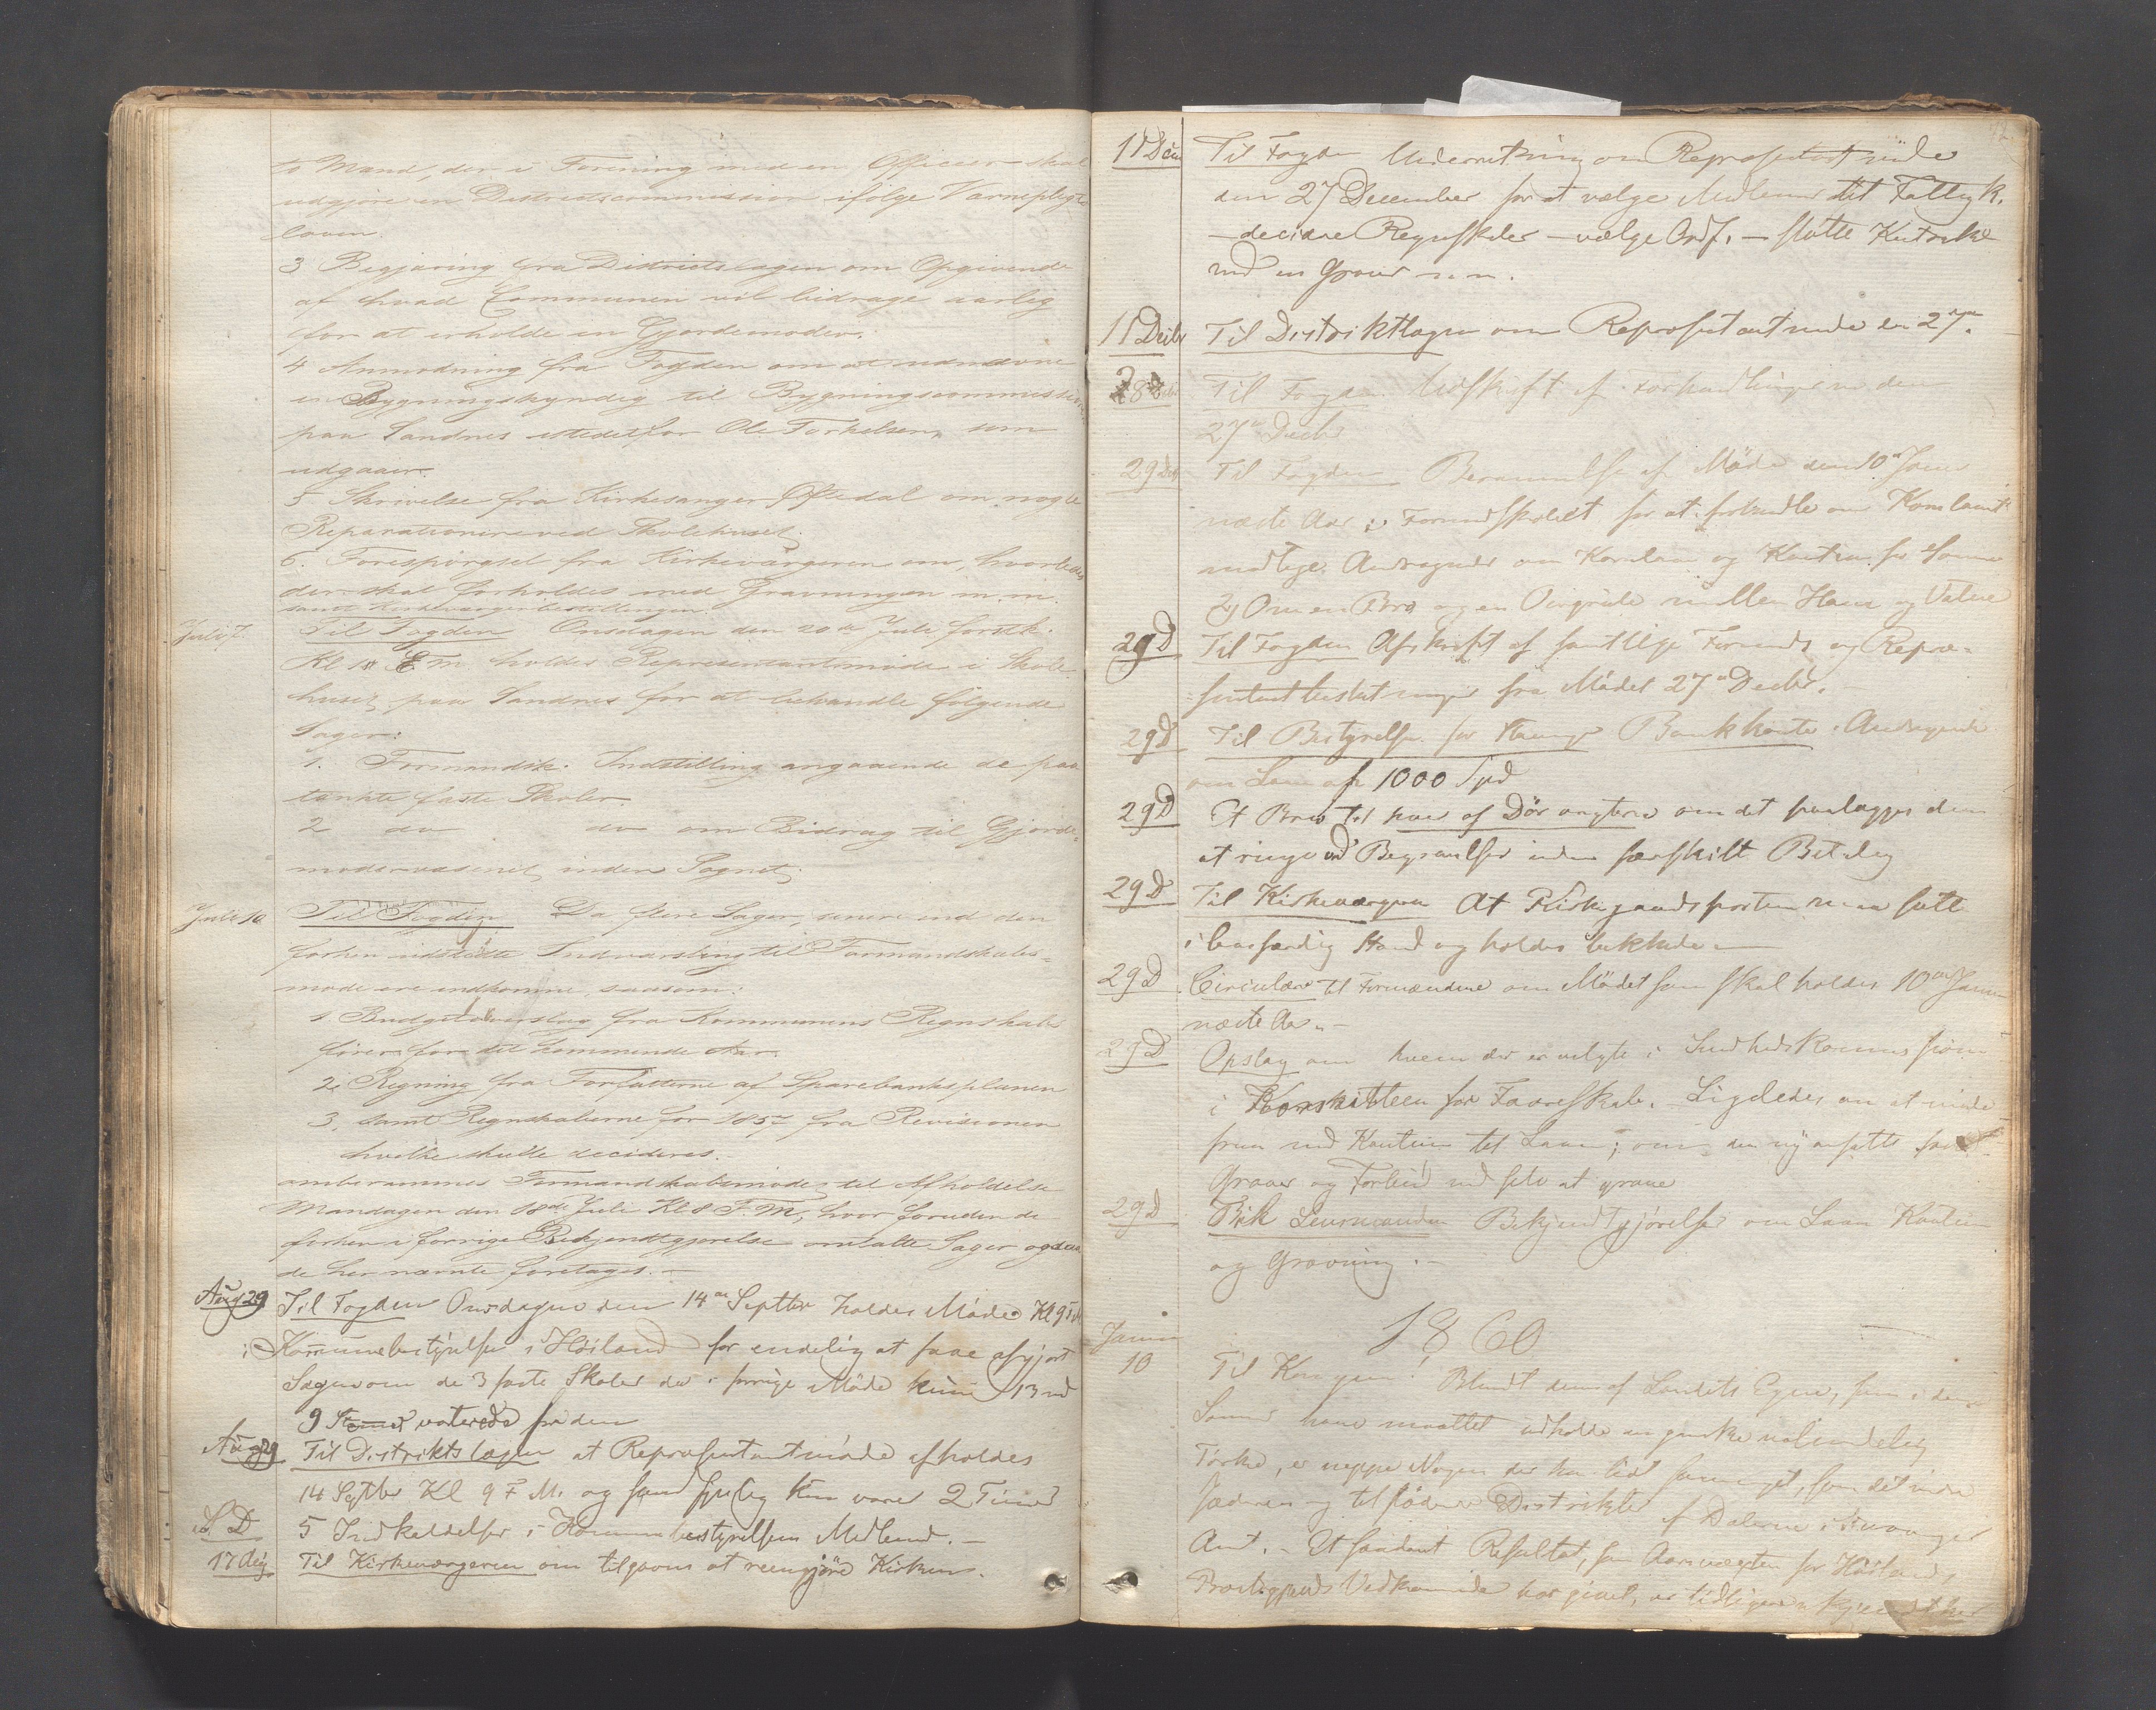 to Mænd, der i Forening med en Officeer skal
udgjøre en Districtscommission ifølge Værnepligts
loven.
3 Begjæring fra Districtslægen om Opgivende
af hvad Communen vil bidrage aarlig
for at erholde en Gjordemoder.
4 Anmodning fra Fogden om at udnævne
en Bygningskyndig til Bygningscommissionen
paa Sandnes istedetfor Ole Torkelsen, som
udgaaer.
5 Skrivelse fra Kirkesanger Østedal om nogle
Reparationer ved Skolehuset.
6. Forespørgsel fra Kirkeværgeren om, hvorledes
der skal forholdes med Gravningen m.m.
samt Kirkeværgerbestillingen.
Juli 7. Til Fogden Onsdagen den 20de Juli førstk.
Kl 10 F m holdes Representantmøde i Skole
huset paa Sandnes for at behandle følgende
Sager:
1. Formandsk. Indstilling angaaende de paa
tænkte faste Skoler.
2 do do om Bidrag til Gjorde-
modervæsenet inden Sognet.
Juli 10 Til Fogden Da flere Sager, senere end den
forhen udstedte Indvarsling til Formandskabs-
møde ere indkomne, saasom:
1 Budgetoverslag fra Kommunens Regnskabs
fører for det kommende Aar.
2, Regning fra Forfatterne af Sparebanksplanen
3, samt Regnskaberne for 1857 fra Revisionen
hvilke skulle decideres.
amberammes Formandskabsmøde til Afholdelse
Mandagen den 18de Juli Kl 8 F.M, hvor foruden de
forhen i forrige Bekjendtgjørelse omtalte Sager ogsaa
de her nævnte foretages. —
Aug 29 Til Fogden Onsdagen den 14de Septbr holdes Møde Kl 9
i Kommunebestyrelsen i Høiland for endelig at faae afgjort
Sagen om de 3 faste Skoler da i forrige Møde kun 13 ud
9 Stemmer voterede for den
Aug 29 Til Distriktslægen at Repræsentantmøde afholdes
14 Septbr Kl 9 F M. og
S. D 5 Indkaldelser i Kommunebestyrelsens Medlemmer. —
17 Til Kirkeværgeren om at reengjøre Kirken.
11 Decbr Til Fogden Underretning om Repræsentantmøde
den 27 December for at vælge Medlemmer til Fattigk.
— decidere Regnskaber — vælge Ordf. — slutte Kontrakt
med en Graver m. m.
11 Decbr Til Distriktslægen om Repræsentantmøde den 27de
28 Decbr Til Fogden Udskrift af Forhandlingerne den
27de Decbr
29 Decbr Til Fogden Berammelse af Møde den 10de Januar
næste Aar i Formandskabet for at forhandle om
Andragender om Kornlaan og Kaution for
2) Om en Bro og en mellem Hana og Vatne
29 D Til Fogden Afskrift af samtlige Formands og Repræ-
sentantbeslutninger fra Mødet 27de Decbr. —
29 D Til Bestyrelsen for Stavanger Bankkontor Andragende
om Laan af 1000 Spd
29 D Et Brev til hver af om det paalægges dem
at ringe ved Begravelser uden særskilt Betaling
29 D Til Kirkeværgeren At Kirkegaardsporten maa sættes
i brugfærdig Stand og holdes lukket —
29 D Circulære til Formændene om Mødet som skal holdes 10de Januar
næste Aar. —
29 D Opslag om hvem der er valgte i Sundhedskommissionen
i Komiteen for Faareskab. Ligeledes om at møde
frem med Kaution til Laan; om den nyansatte
Graver og Forbud mod selv at grave
29 D Lensmanden Bekjendtgjørelse om Laan Kaution
og Gravning. —
1860
Januar 10 Til Kongen! Blandt dem af Landets Egne, som i denne
Sommer have maattet udholde en ganske ualmindelig
Tørke, er neppe Nogen der har lidt saameget, som det indre
Jæderen og tilstødende Distrikter af Dalerne i Stavanger
Amt. — Et saadant Resultat, som Aarsvæxten for Høilands
Præstegjelds Vedkommende har givet, er tidligere